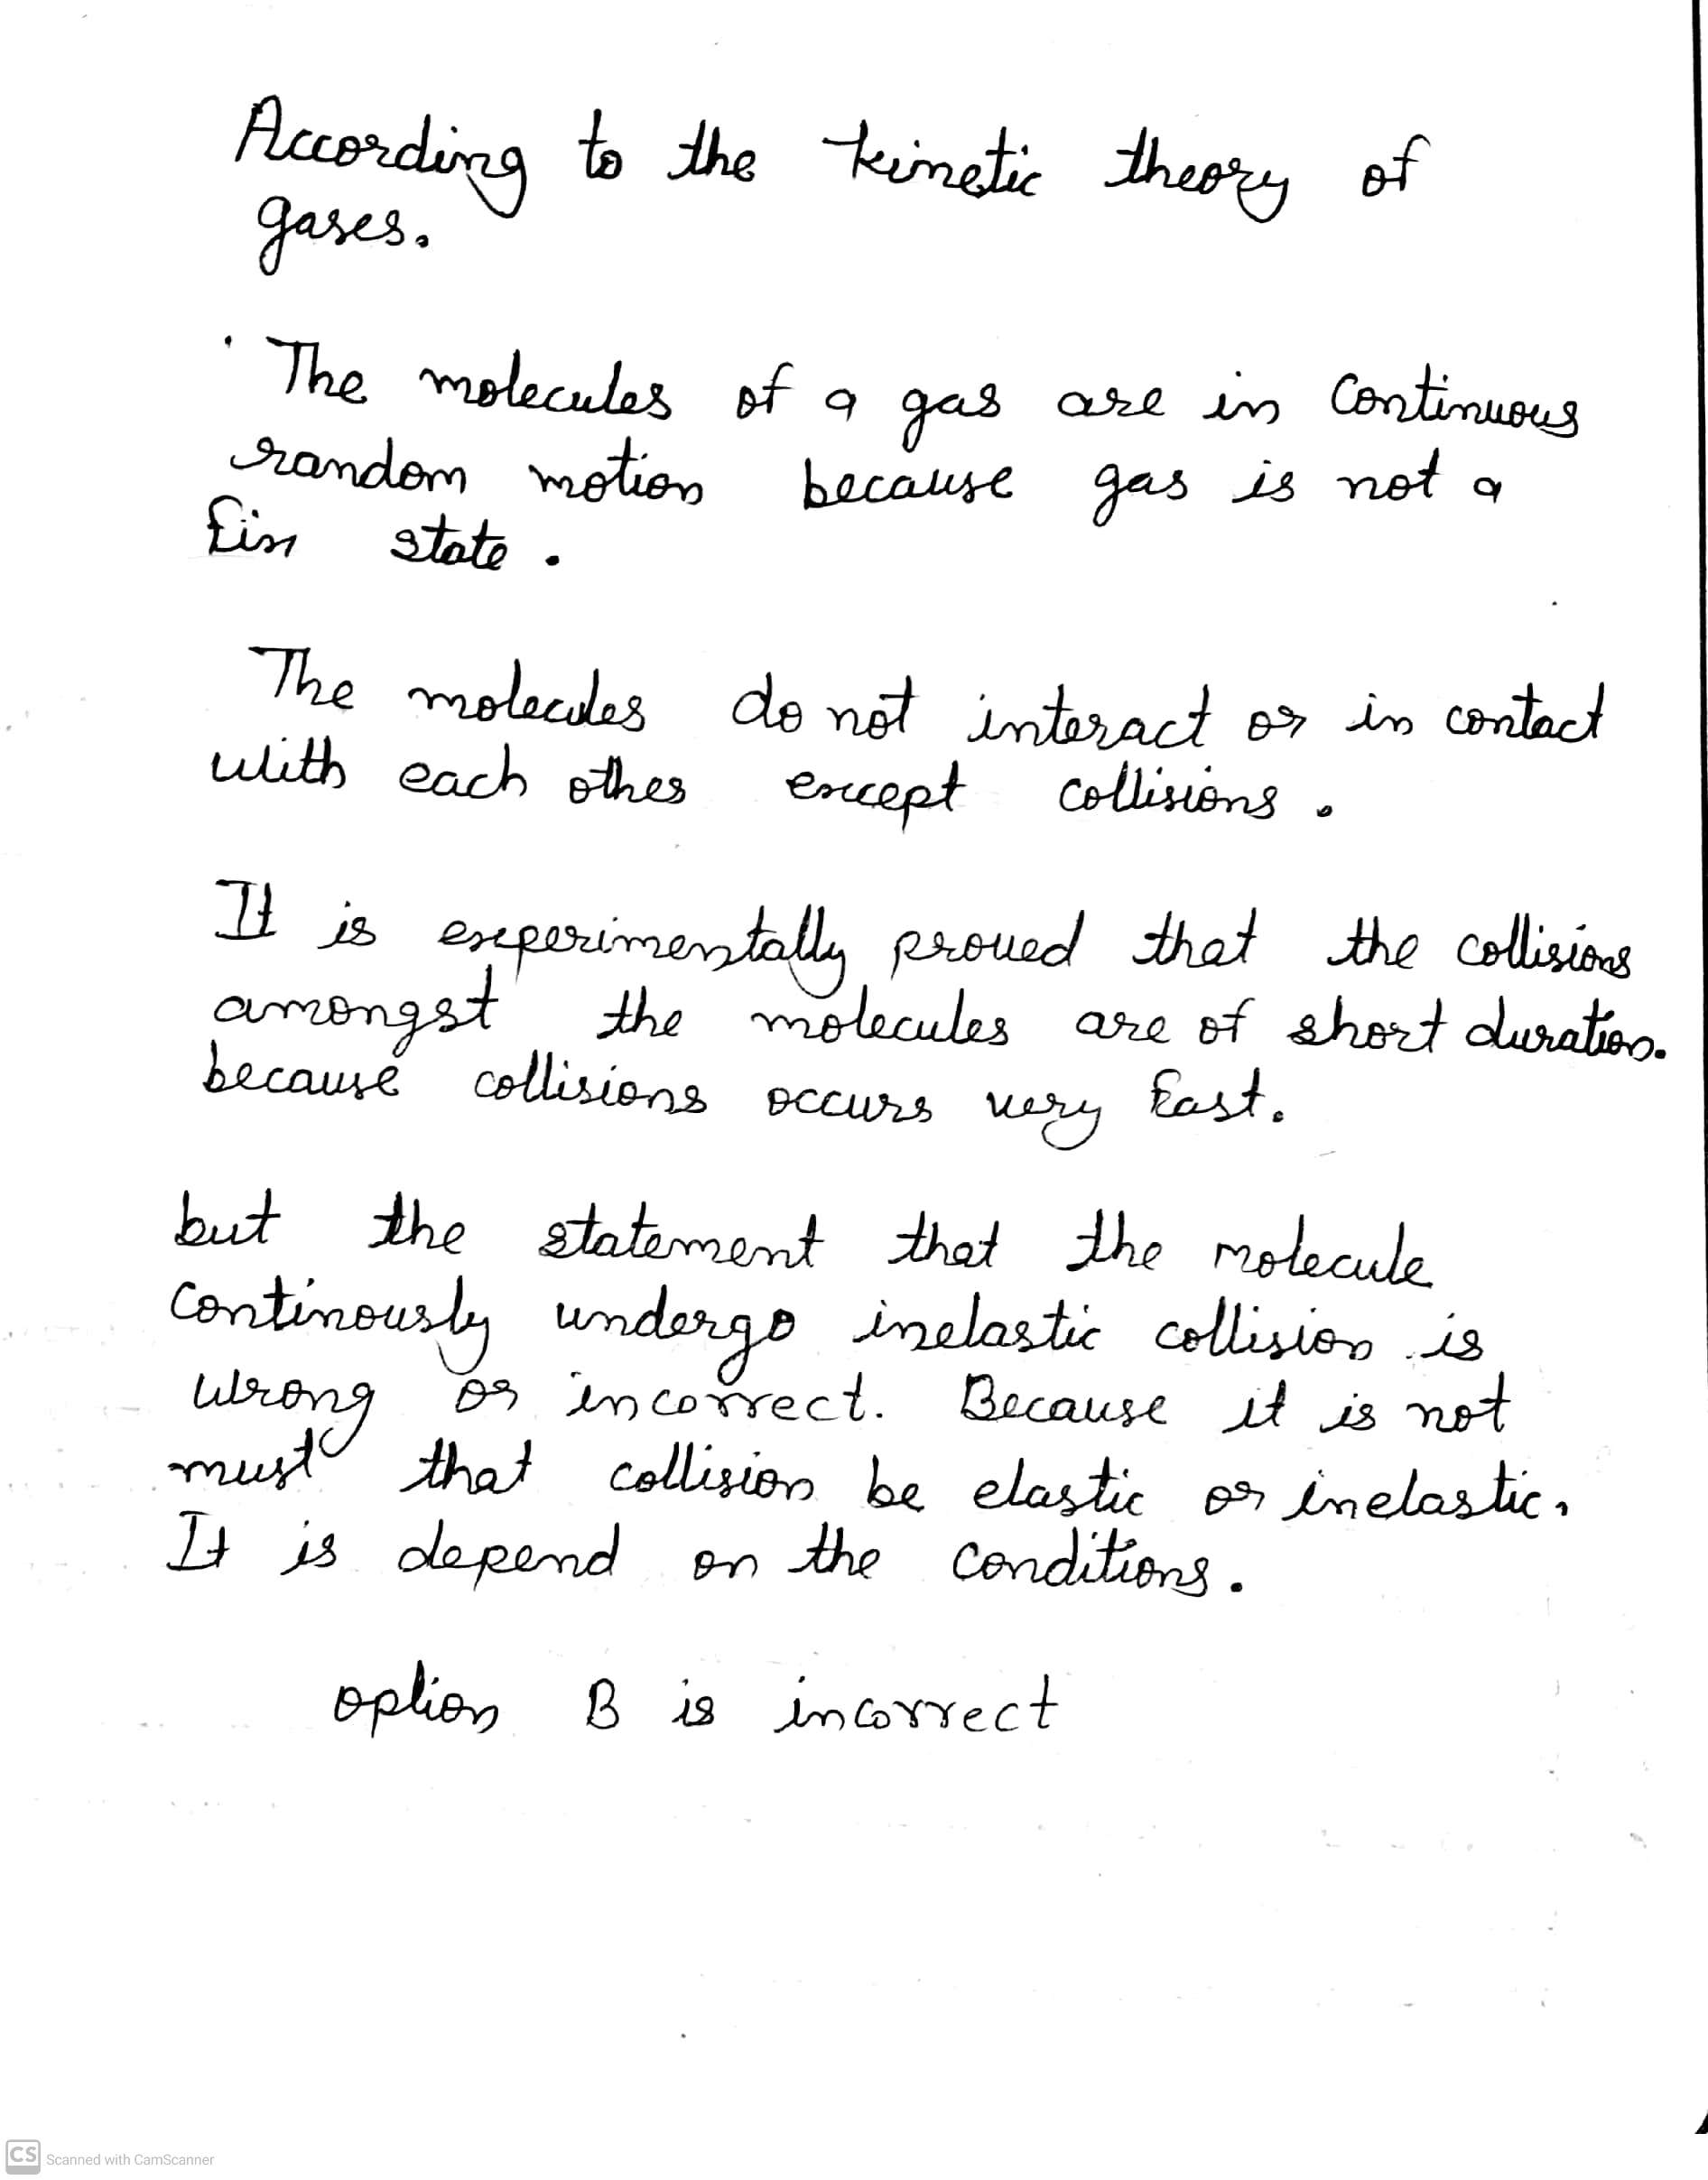 According to the kinetic theory of
gases.
The molecules of a gas are in continuous
random motion because gas is not a
fix state.
The molecules do not interact or in contact
with each other except collisions.
It is experimentally proved that the collisions
amongst the molecules are of short duration.
because collisions occurs very fast.
but the statement that the molecule
continously undergo inelastic collision is
wrong or incorrect. Because it is not
must that collision be elastic or inelastic.
It is depend on the conditions.
option B is incorrect
CS Scanned with CamScanner